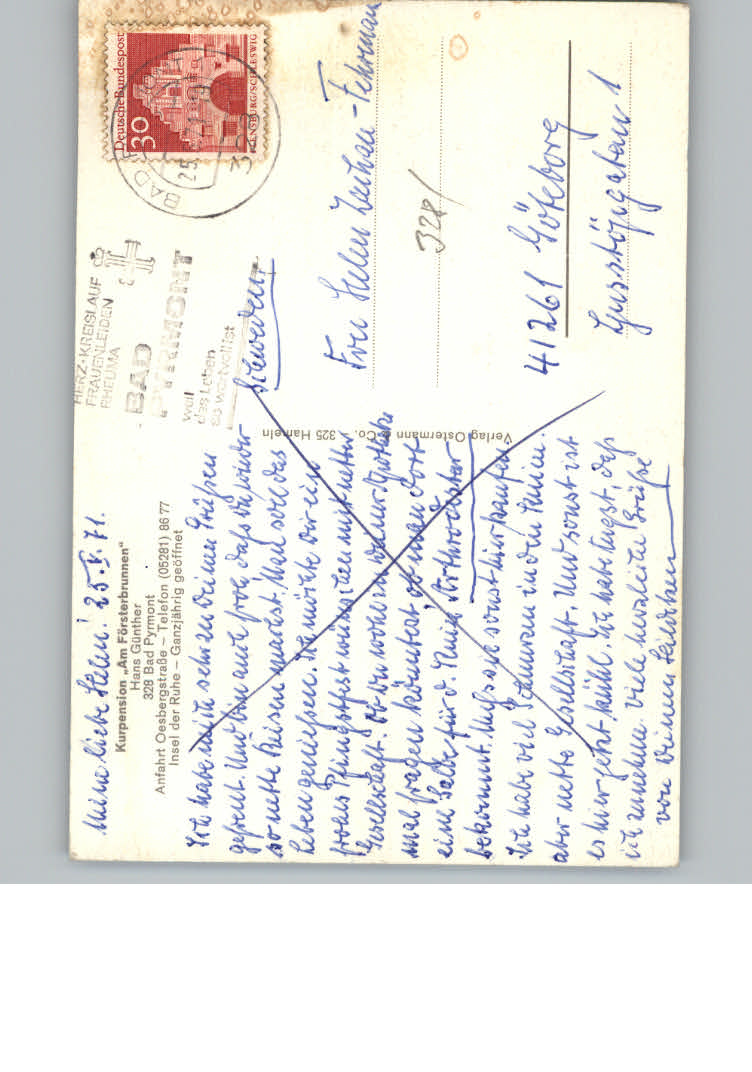 Meine liebe Helen! 25.5.71.
Kurpension „Am Försterbrunnen"
Hans Günther
328 Bad Pyrmont
Anfahrt Oesbergstraße – Telefon (05281) 86 77
Insel der Ruhe – Ganzjährig geöffnet
Ich habe mich sehr zu Deinen Grüßen
gefreut. Und bin auch froh, daß Du wieder
so nette Reisen machst. Man soll das
Leben geniessen. Ich möchte Dir ein
frohes Pfingstfest wünschen mit netter
Gesellschaft. Ob Du wohl in einer Apotheke
mal fragen könntest ob man dort
eine Salbe für d. Knie
bekommt. Muß sie sonst hier kaufen.
Ich habe viel Schmerzen in den Knien.
aber nette Gesellschaft. Und sonst ist
es hier jetzt kühl. Ich habe Angst, daß
ich zunehme. Viele herzliche Grüße
von Deinem
Verlag Ostermann & Co., 325 Hameln
HERZ-KREISLAUF
FRAUENLEIDEN
RHEUMA
BAD
PYRMONT
weil
das Leben
so wertvoll ist
BAD
25
Deutsche Bundespost
30
FLENSBURG/SCHLESWIG
Schweden
Frau Helen
328/
41261 Göteborg